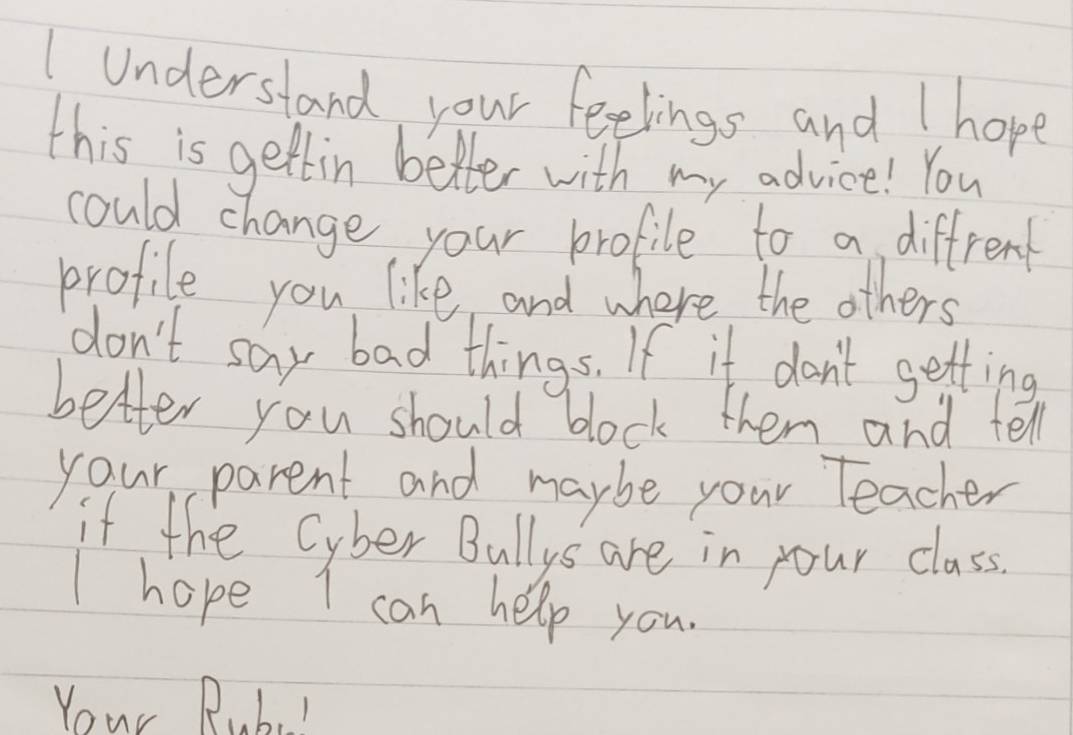 I Understand your feelings and I hope
this is gettin better with my advice! You
could change your profile to a diffrent
profile you like, and where the others
don't say bad things. If it don't getting
better you should block them and tell
your parent and maybe your Teacher
if the Cyber Bullys are in your class.
I hope I can help you.
Your Ruby!